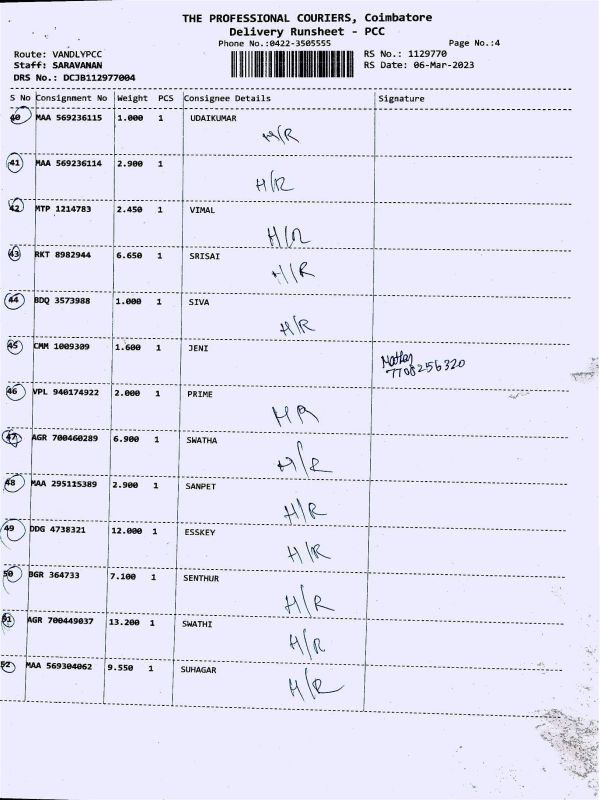 THE PROFESSIONAL COURIERS, Coimbatore
Delivery Runsheet - PCC
Phone No.:0422-3505555 Page No.:4
Route: VANDLYPCC RS No.: 1129770
Staff: SARAVANAN RS Date: 06-Mar-2023
DRS No.: DCJB112977004
S No Consignment No Weight PCS Consignee Details Signature
40 MAA 569236115 1.000 1 UDAIKUMAR
H/R
41 MAA 569236114 2.900 1
H/R
42 MTP 1214783 2.450 1 VIMAL
H/R
43 RKT 8982944 6.650 1 SRISAI
H/R
44 BDQ 3573988 1.000 1 SIVA
H/R
45 CMM 1009309 1.600 1 JENI
7708256320
46 VPL 940174922 2.000 1 PRIME
H/R
47 AGR 700460289 6.900 1 SWATHA
H/R
48 MAA 295115389 2.900 1 SANPET
H/R
49 DDG 4738321 12.000 1 ESSKEY
H/R
50 BGR 364733 7.100 1 SENTHUR
H/R
51 AGR 700449037 13.200 1 SWATHI
H/R
52 MAA 569304062 9.550 1 SUHAGAR
H/R